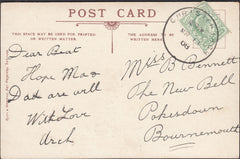 POST CARD
THIS SPACE MAY BE USED FOR PRINTED OR WRITTEN MATTER.
THE ADDRESS TO BE WRITTEN HERE.
Dear Beat
Hope Ma &
Dad are well
With Love
Arch
Miss B Bennett
The New Bell
Pokesdown
Bournemouth